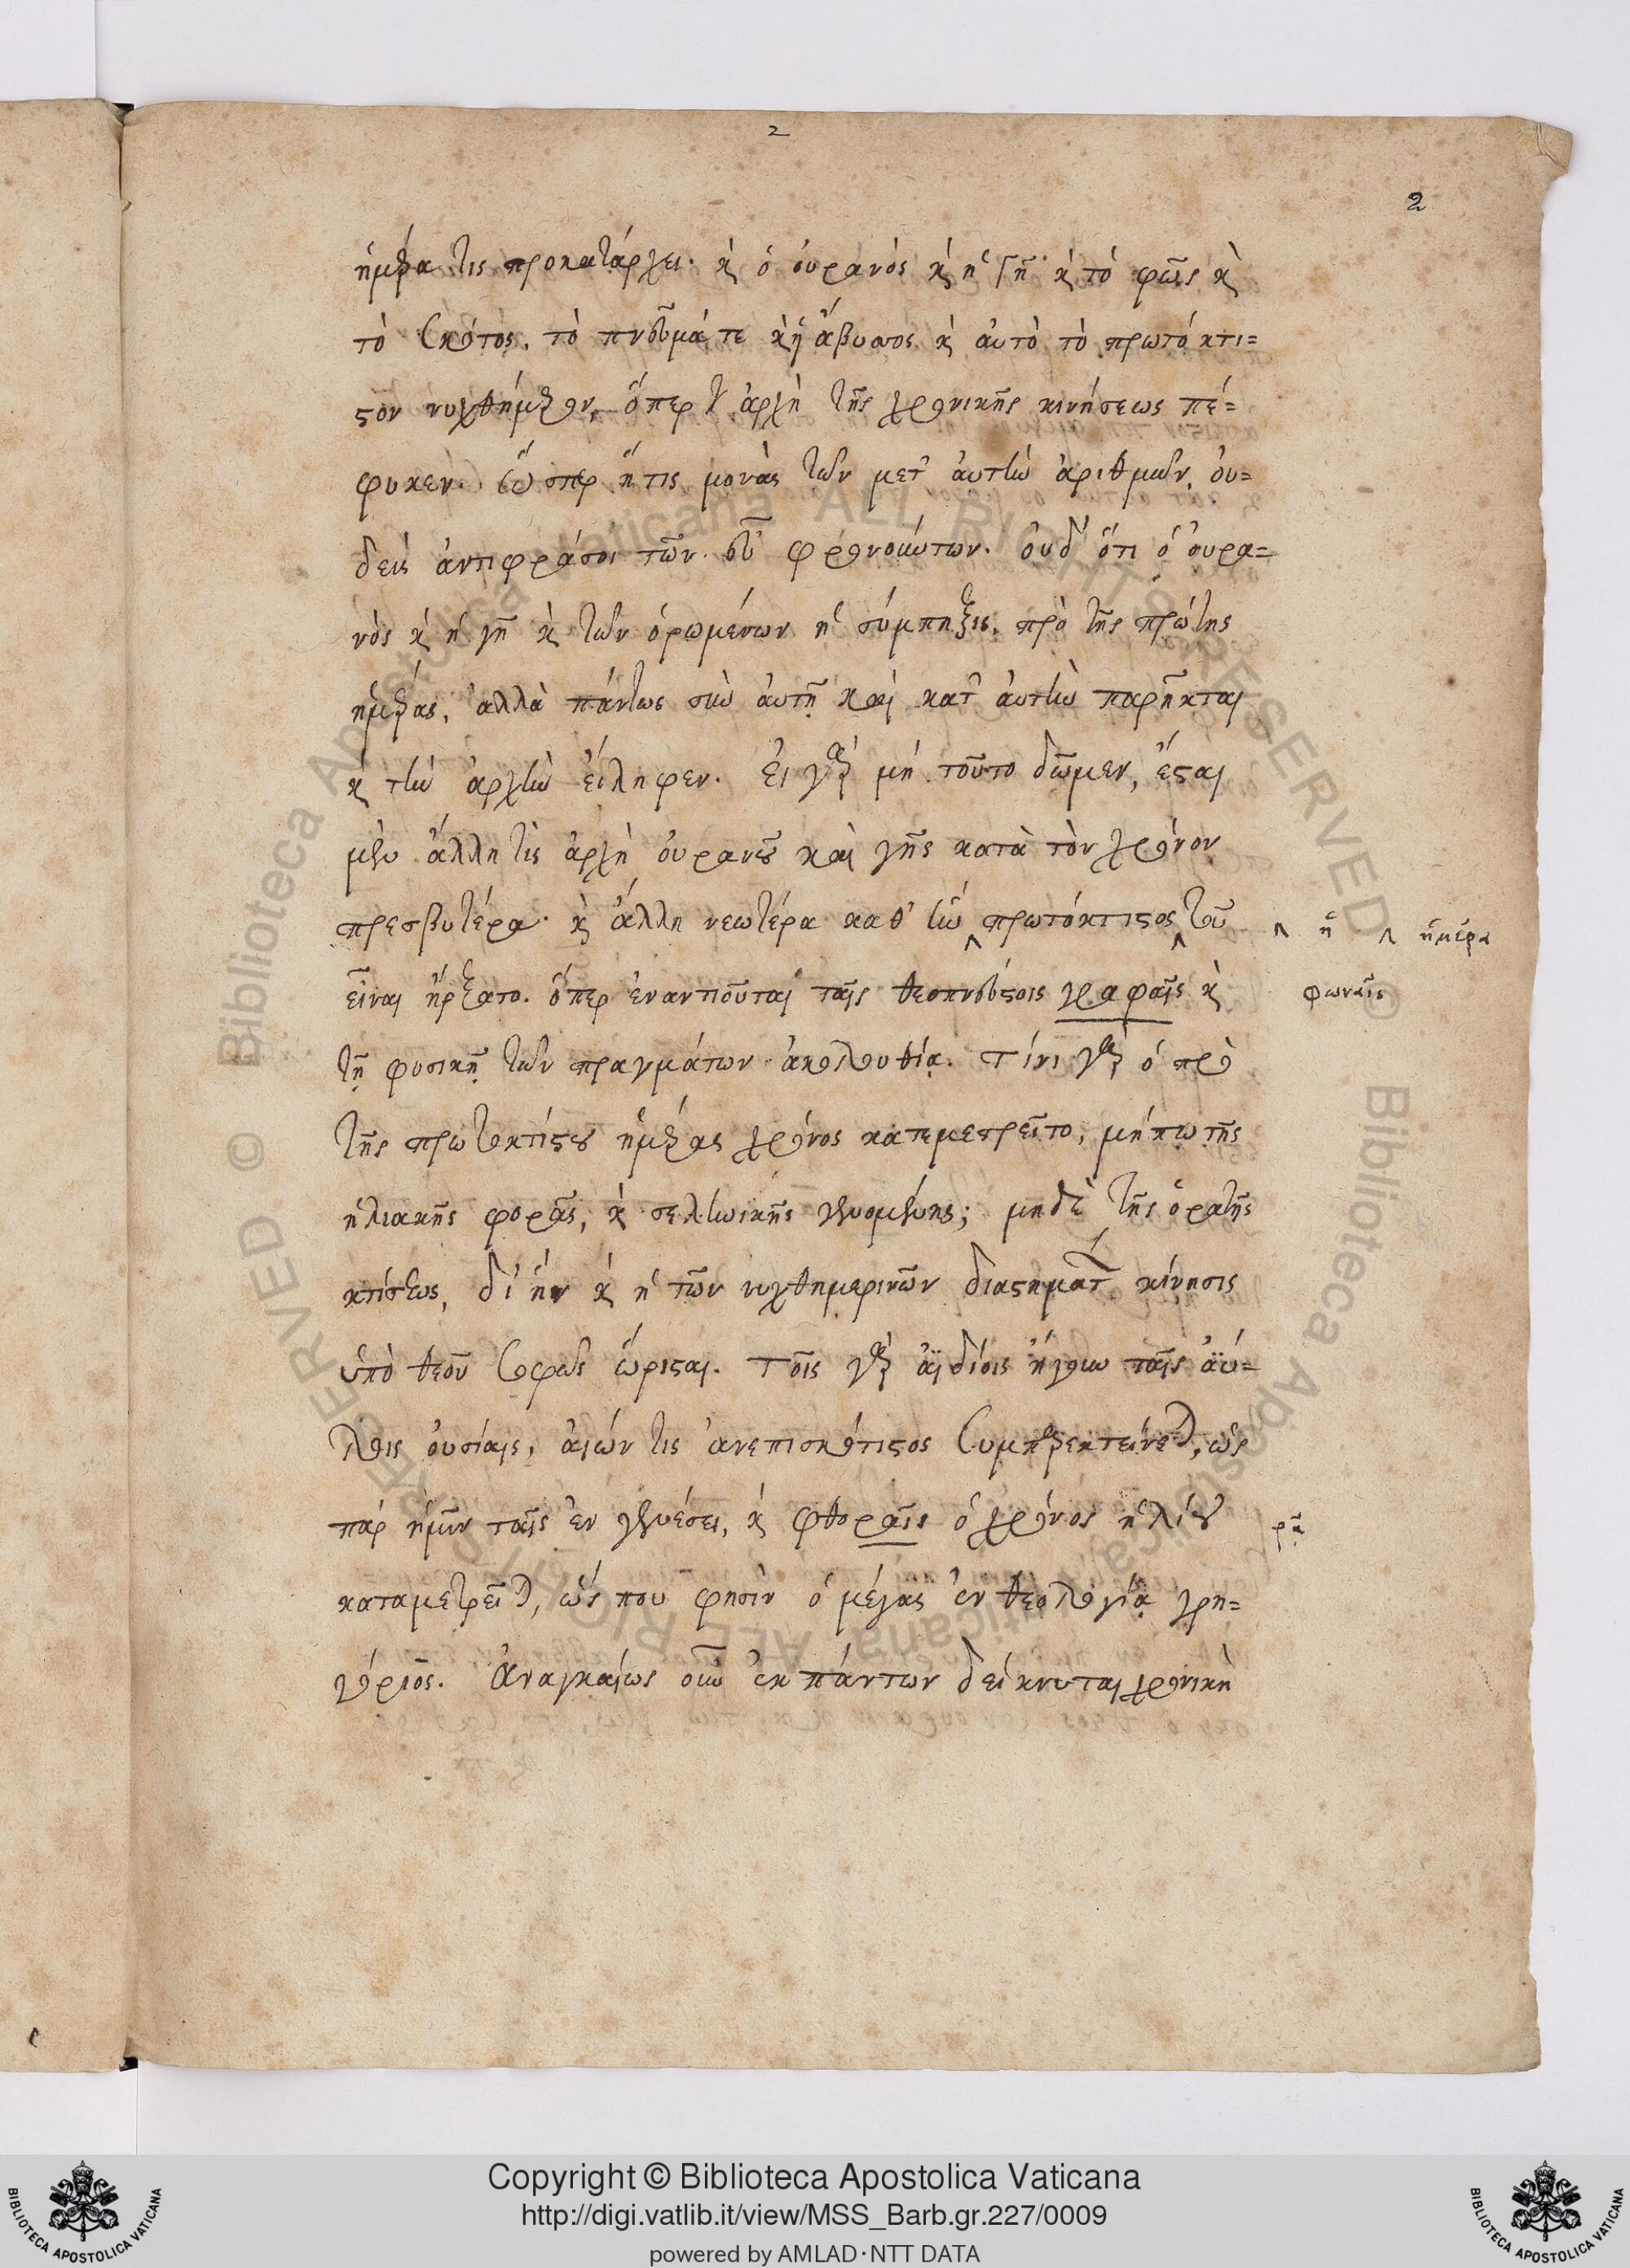 2
2
ἡμέρα τις προκατάρχει· κ̀ ὁ οὐρανὸς κ̀ ἡ γῆ κ̀ τὸ φῶς κ̀
τὸ σκότος, τὸ πνεῦμά τε κ̀ ἡ ἄβυσσος κ̀ αὐτὸ τὸ πρωτόκτι=
στον νυχθήμερον, ὅπερ ἀρχὴ τῆς χρονικῆς κινήσεως πέ=
φυκεν. ὥσπερ ἥτις μονὰς τῶν μετ' αὐτὴν ἀριθμῶν. οὐ=
δεὶς ἀντιφράσοι τῶν εὖ φρονούντων. οὐδ' ὅτι ὁ οὐρα=
νὸς κ̀ ἡ γῆ κ̀ τῶν ὁρωμένων ἡ σύμπηξις, πρὸ τῆς πρώτης
ἡμέρας, ἀλλὰ πάντως σὺν αὐτῇ καὶ κατ' αὐτὴν παρῆκται
κ̀ τὴν ἀρχὴν εἴληφεν. Εἰ γὰρ μὴ τοῦτο δῶμεν, ἔσται
μὲν ἄλλη τὶς ἀρχὴ οὐρανοῦ καὶ γῆς κατὰ τὸν χρόνον
πρεσβυτέρα· κ̀ ἄλλη νεωτέρα καθ' ἣν ‸ πρωτόκτιστος ‸ τοῦ ‸ ἡ ‸ ἡμέρα
εἶναι ἤρξατο. ὅπερ ἐναντιοῦται ταῖς θεοπνεύστοις γραφαῖς κ̀ φωναῖς
τῇ φυσικῇ τῶν πραγμάτων ἀκολουθίᾳ. Τίνι γὰρ ὁ πρὸ
τῆς πρωτοκτίστου ἡμέρας χρόνος κατεμετρεῖτο, μήπω τῆς
ἡλιακῆς φορᾶς, κ̀ σεληνικῆς γενομένης; μηδὲ τῆς ὁρατῆς
κτίσεως, δι' ἣν κ̀ ἡ τῶν νυχθημερινῶν διαστημάτ κίνησις
ὑπὸ θεοῦ σοφῶς ὥρισται. Τοῖς γὰρ ἀϊδίοις ἤγουν ταῖς ἀΰ=
λοις οὐσίαις, αἰών τις ἀνεπισκότιστος συμπαρεκτείνεται, ὡς
παρ ἡμῖν ταῖς ἐν γενέσει, κ̀ φθοραῖς ὁ χρόνος ἡλίῳ ρᾷ
καταμετρεῖται, ὥς που φησὶν ὁ μέγας ἐν θεολογίᾳ γρη=
γόριος. Ἀναγκαίως οὖν ἐκ πάντων δείκνυται χρονικὴ
Copyright © Biblioteca Apostolica Vaticana
http://digi.vatlib.it/view/MSS_Barb.gr.227/0009
powered by AMLAD·NTT DATA
BIBLIOTECA APOSTOLICA VATICANA
BIBLIOTECA APOSTOLICA VATICANA